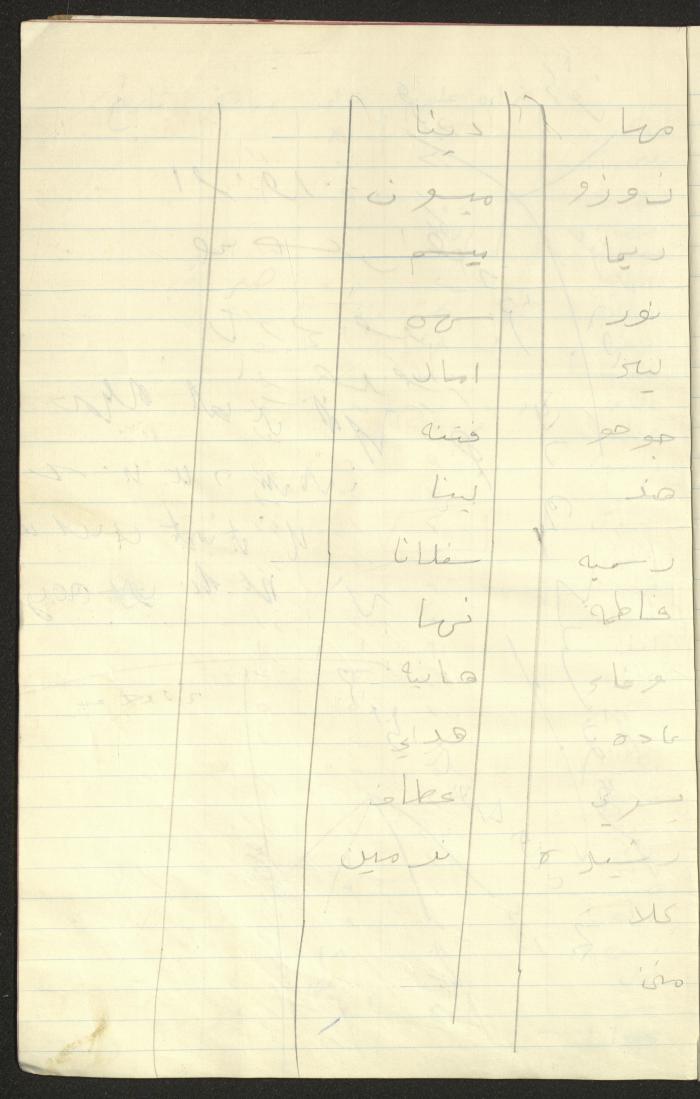 مها
زوزو
ريما
نور
ليلى
جوجو
هند
رسميه
فاطمه
وفاء
غاده
يسرى
رشيده
علا
منى
دينا
ميسون
ميسم
امال
فتنه
لينا
سفلانا
نهى
هانيه
هدايه
عطاف
نرمين